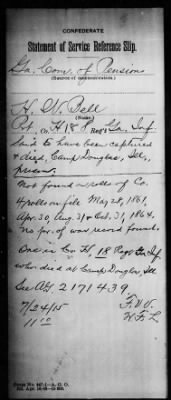 CONFEDERATE
Statement of Service Reference Slip.
Ga. Com. of Pensions
(Source of communication.)
H. W. Bell
(Name.)
Pvt. Co. H 18 Reg't Ga. Inf.
Said to have been captured
& died, Camp Douglas, Ill.,
prison.
Not found on rolls of Co.
H rolls on file May 28, 1861,
Apr. 30, Aug. 31 & Oct. 31, 1864.
No pr. of war record found.
One in Co. H, 18 Regt Ga. Inf.
who died at Camp Douglas, Ill
See AG 2171439.
7/24/15
11 00